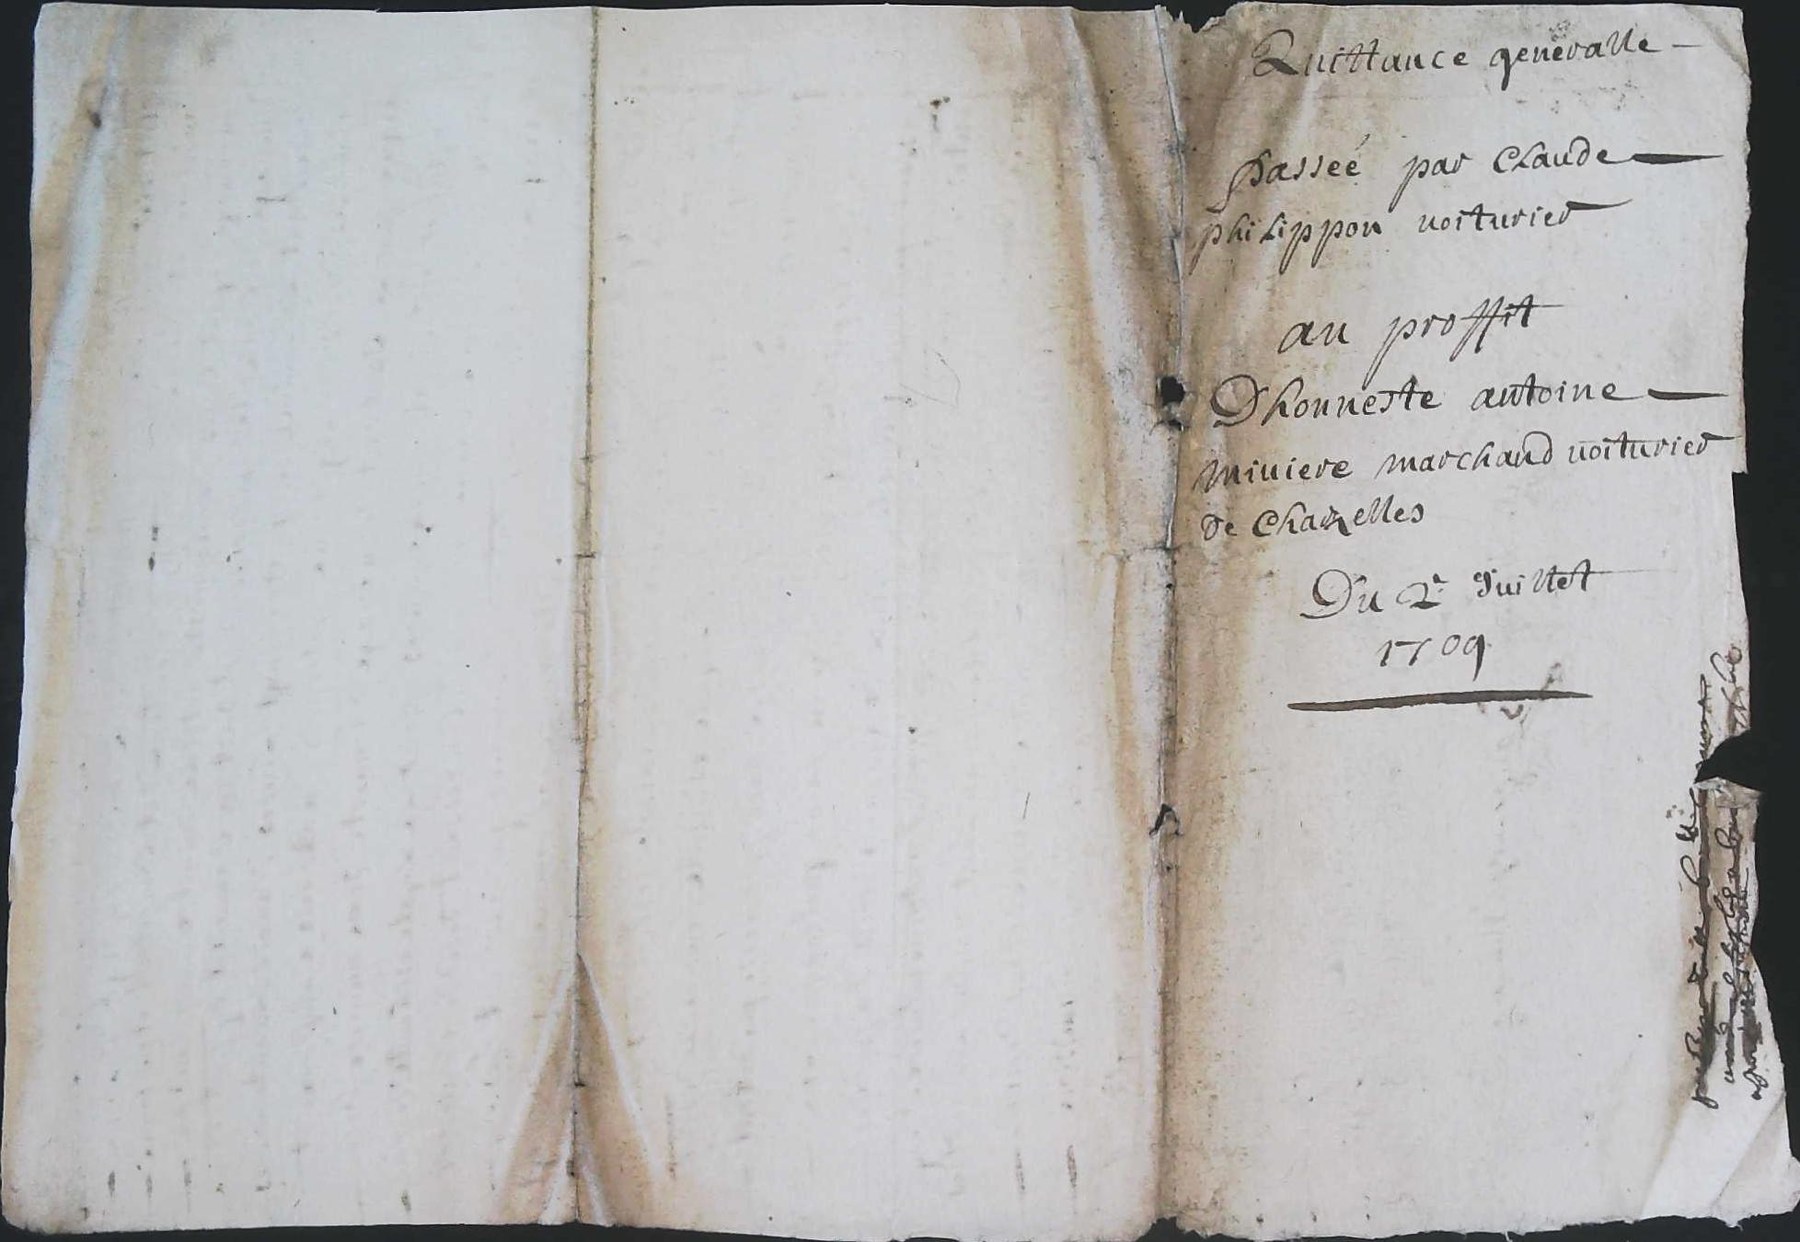 Quittance generalle -
passeé par Claude
philippon uoiturier
au proffit
D'honneste antoine
miniere marchand uoiturier
de Chazelles
Du 2e Juillet
1709